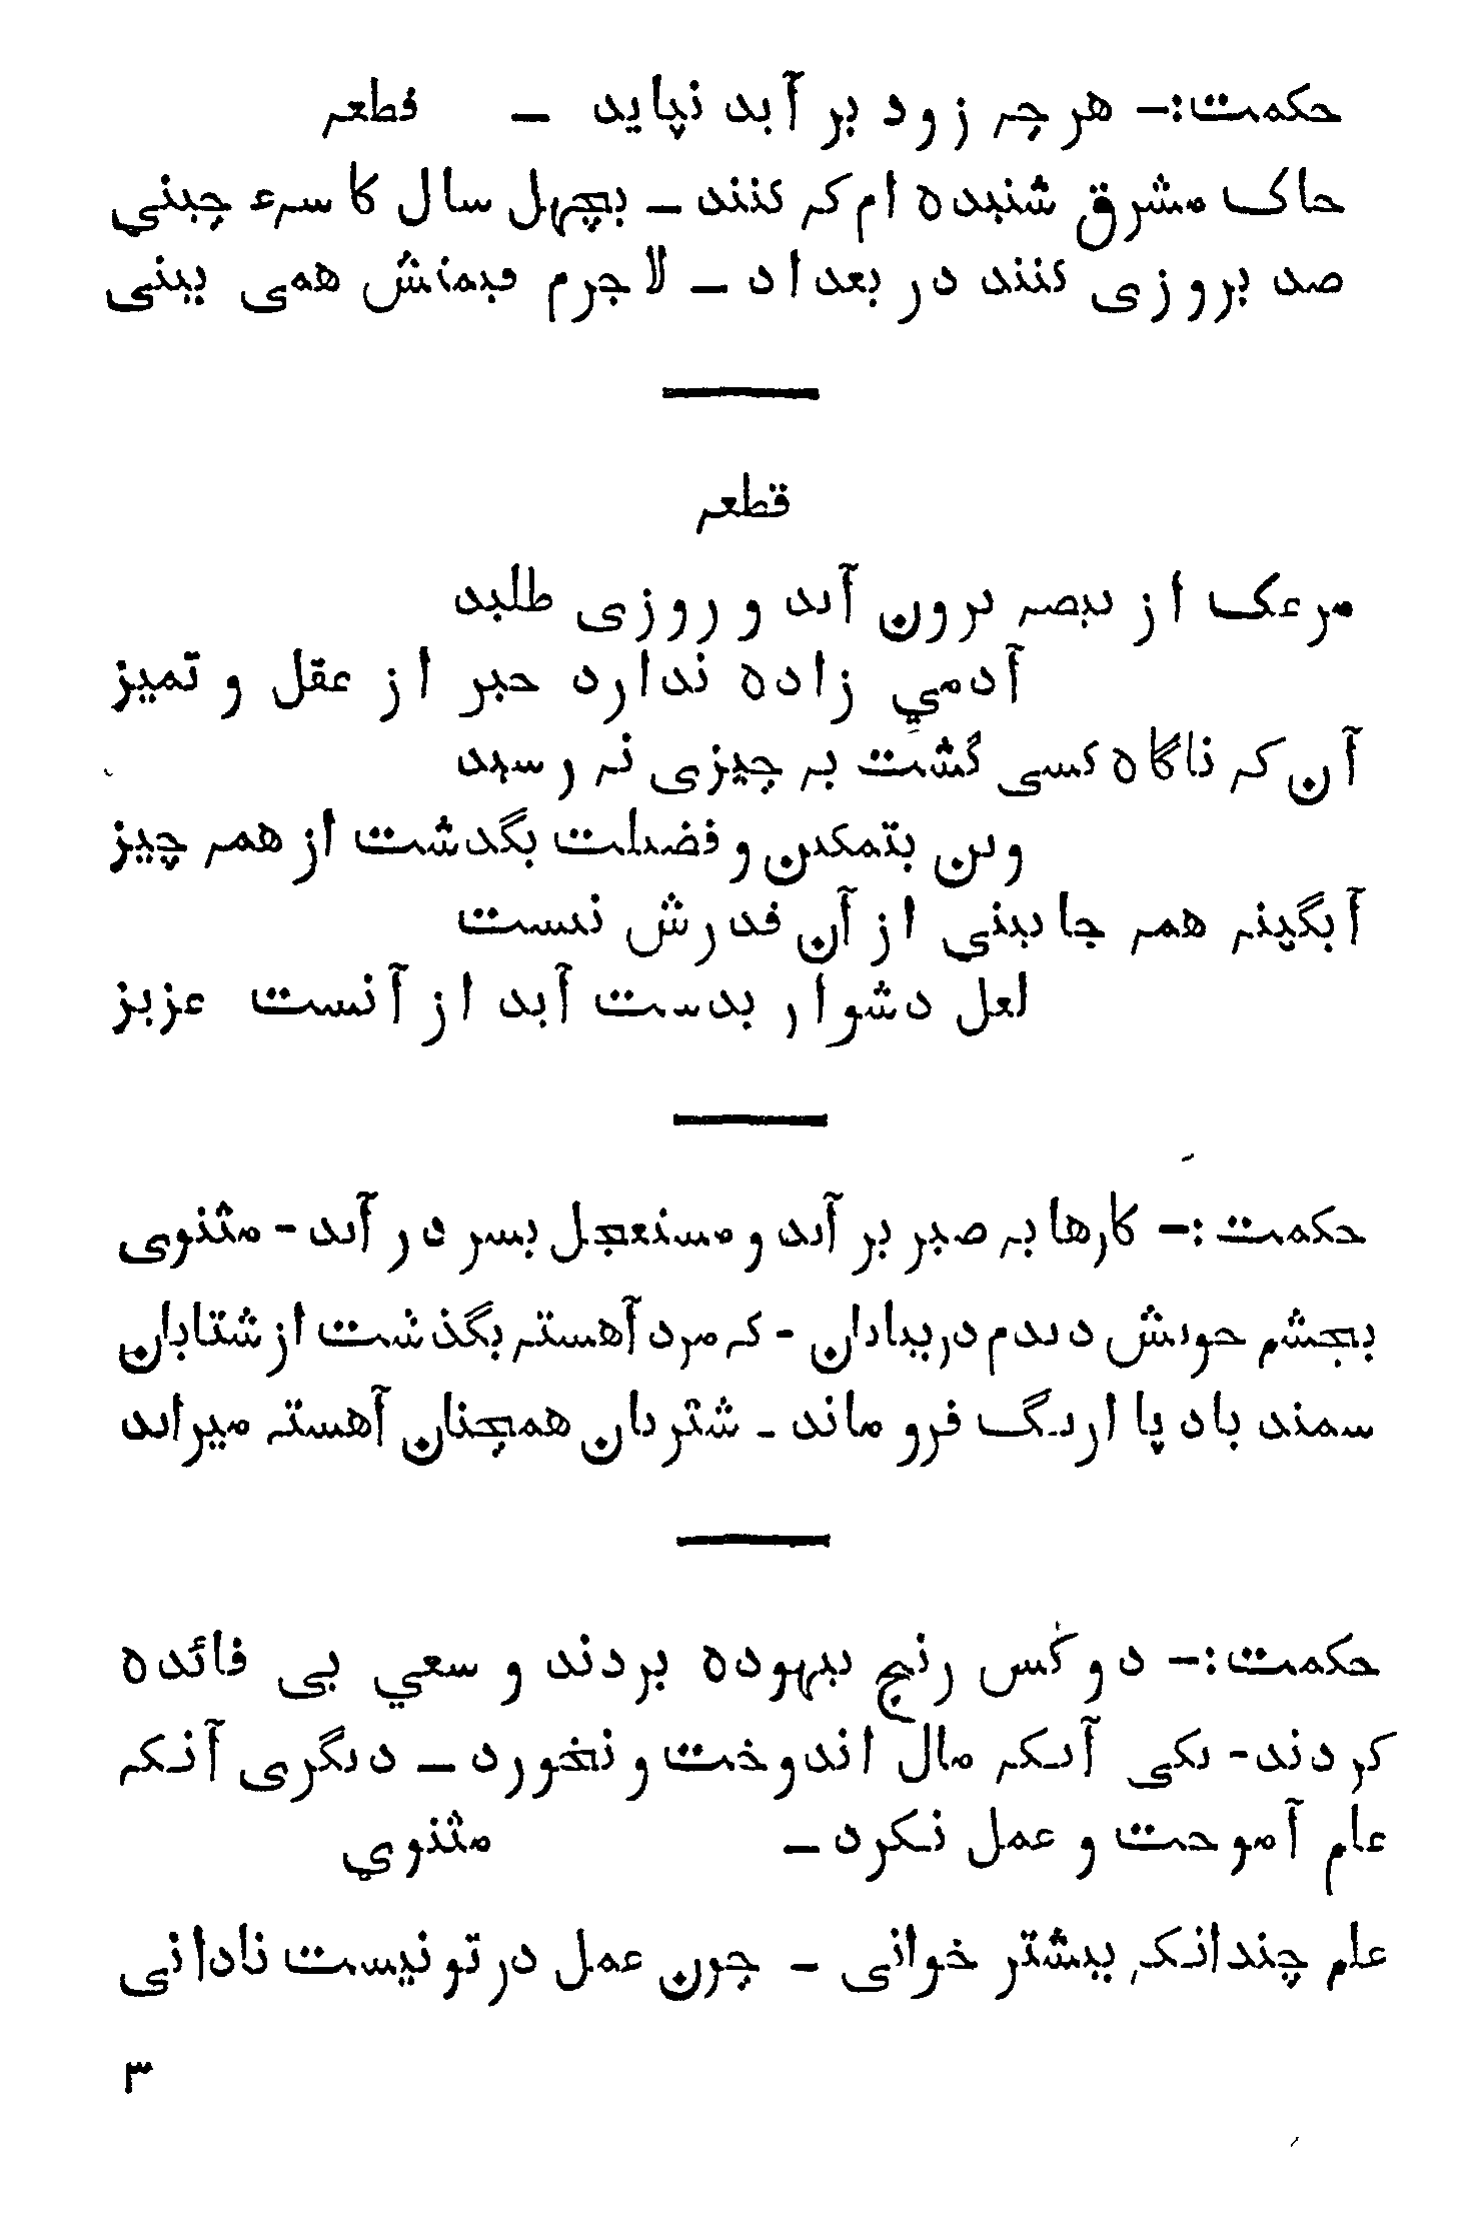 حکمت:– هر چہ زود بر آبد نپاید – قطعہ
خاک مشرق شنبده ام کہ کنند – بچہل سال کا سہء چبنی
صد بروزی کنند در بعداد – لا جرم قیمتش همی بینی
قطعہ
مرغک از بیضہ برون آید و روزی طلبد
آدمي زاده ندارد خبر از عقل و تمیز
آن کہ ناگاه کسی گشت بہ چیزی نہ رسید
وین بتمکین و فضیلت بگذشت از همہ چیز
آبگینہ همہ جا بینی از آن قدرش نیست
لعل دشوار بدست آبد از آنست عزیز
حکمت:– کارها بہ صبر بر آید و مستعجل بسر در آید - مثنوی
بچشم خویش دیدم در بیابان - کہ مرد آهستہ بگذشت از شتابان
سمند باد پا از تگ فرو ماند - شتربان همچنان آهستہ میراند
حکمت:– دو کس رنج بیهوده بردند و سعي بی فائده
کردند - یکی آنکہ مال اندوخت و نخورد – دیگری آنکہ
علم آموخت و عمل نکرد – مثنوي
علم چندانکہ بیشتر خوانی – چون عمل در تو نیست نادانی
۳